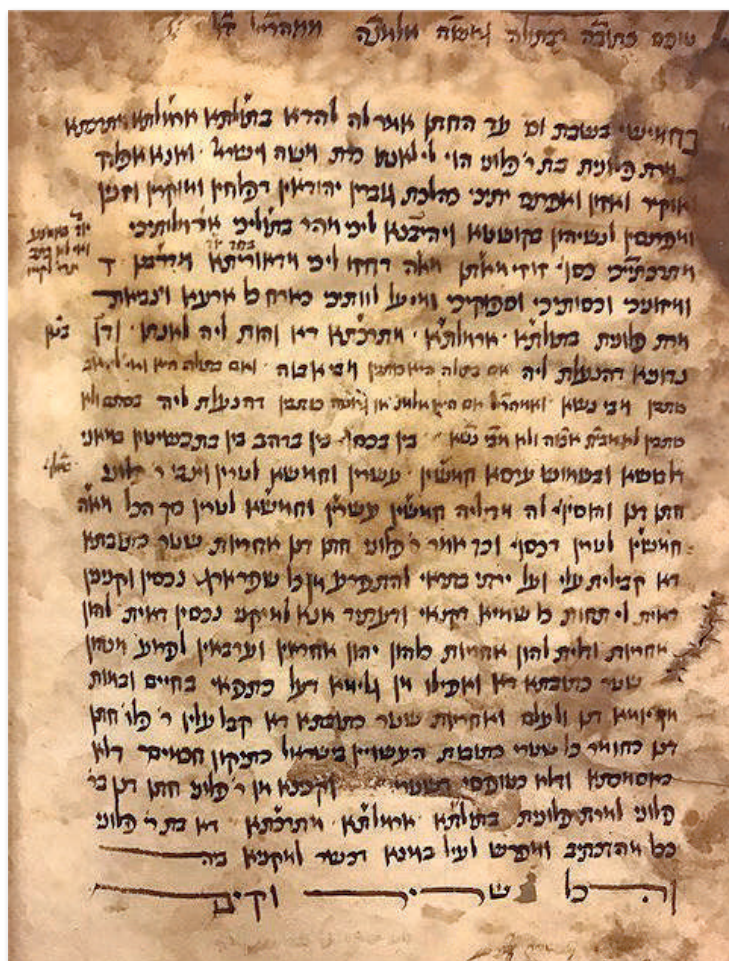 טופס כתובה לבתולה אלמנה
בחמישי בשבת וס׳ עד החתן אמר לה להדא בתולתא ארמלתא מתרכתא
מרת פלונית בת ר׳ פלוני הוי לי לאנתו כדת משה וישר׳ ואנא אפלח
ואוקיר ואיזון ואפרנס יתיכי כהלכת גוברין יהודאין דפלחין ומוקרין וזנין
ומפרנסין לנשיהון בקושטא ויהיבנא ליכי מהר בתוליכי ארמלותיכי
מתרכתיכי כסף זוזי מאתן מאה דחזו ליכי מדאוריתא מדרבנן
ומזוניכי וכסותיכי וסיפוקיכי ומיעל לוותיכי כארח כל ארעא וצביאת
מרת פלונית בתולתא ארמלתא מתרכתא דא והות ליה לאנתו ודן
נדוניא דהנעלת ליה אם בתולה היא כותבין מבי אבוה ואם בתולה היא ואין לה אב
כותבין מבי נשא אם היא אלמנה או גרושה כותבין דהנעלת ליה בסתם ולא
כותבין לא מבית אבוה ולא מבי נשא בין בכסף בין בדהב בין בתכשיטין במאני
דלבושא ובשמוש ערסא חמשין עשרין וחמשא לטרין וצבי ר׳ פלוני
חתן דנן והוסיף לה מדיליה חמשין עשרין וחמשא לטרין סך הכל מאה
חמשין לטרין דכסף וכך אמר ר׳ פלוני חתן דנן אחריות שטר כתובתא
דא קבילית עלי ועל ירתי בתראי להתפרע מן כל שפר ארג נכסין וקנינין
דאית לי תחות כל שמיא דקנאי ודעתיד אנא למיקנא נכסין דאית להון
אחריות ודלית להון אחריות כלהון יהון אחראין וערבאין לפרוע מנהון
שטר כתובתא דא ואפילו מן גלימא דעל כתפאי בחיים ובמות
מן יומא דנן ולעלם ואחריות שטר כתובתא דא קבל עליו ר׳ פלו׳ חתן
דנן כחומר כל שטרי כתובות העשויין בישראל כתיקון חכמים דלא
כאסמכתא ודלא כטופסי דשטרי וקנינא מן ר׳ פלוני חתן דנן בר׳
פלוני למרת פלונית בתולתא ארמלתא מתרכתא דא בת ר׳ פלוני
ככל מה דכתיב ומפרש לעיל במנא דכשר למקניא ביה
והכל שריר וקים